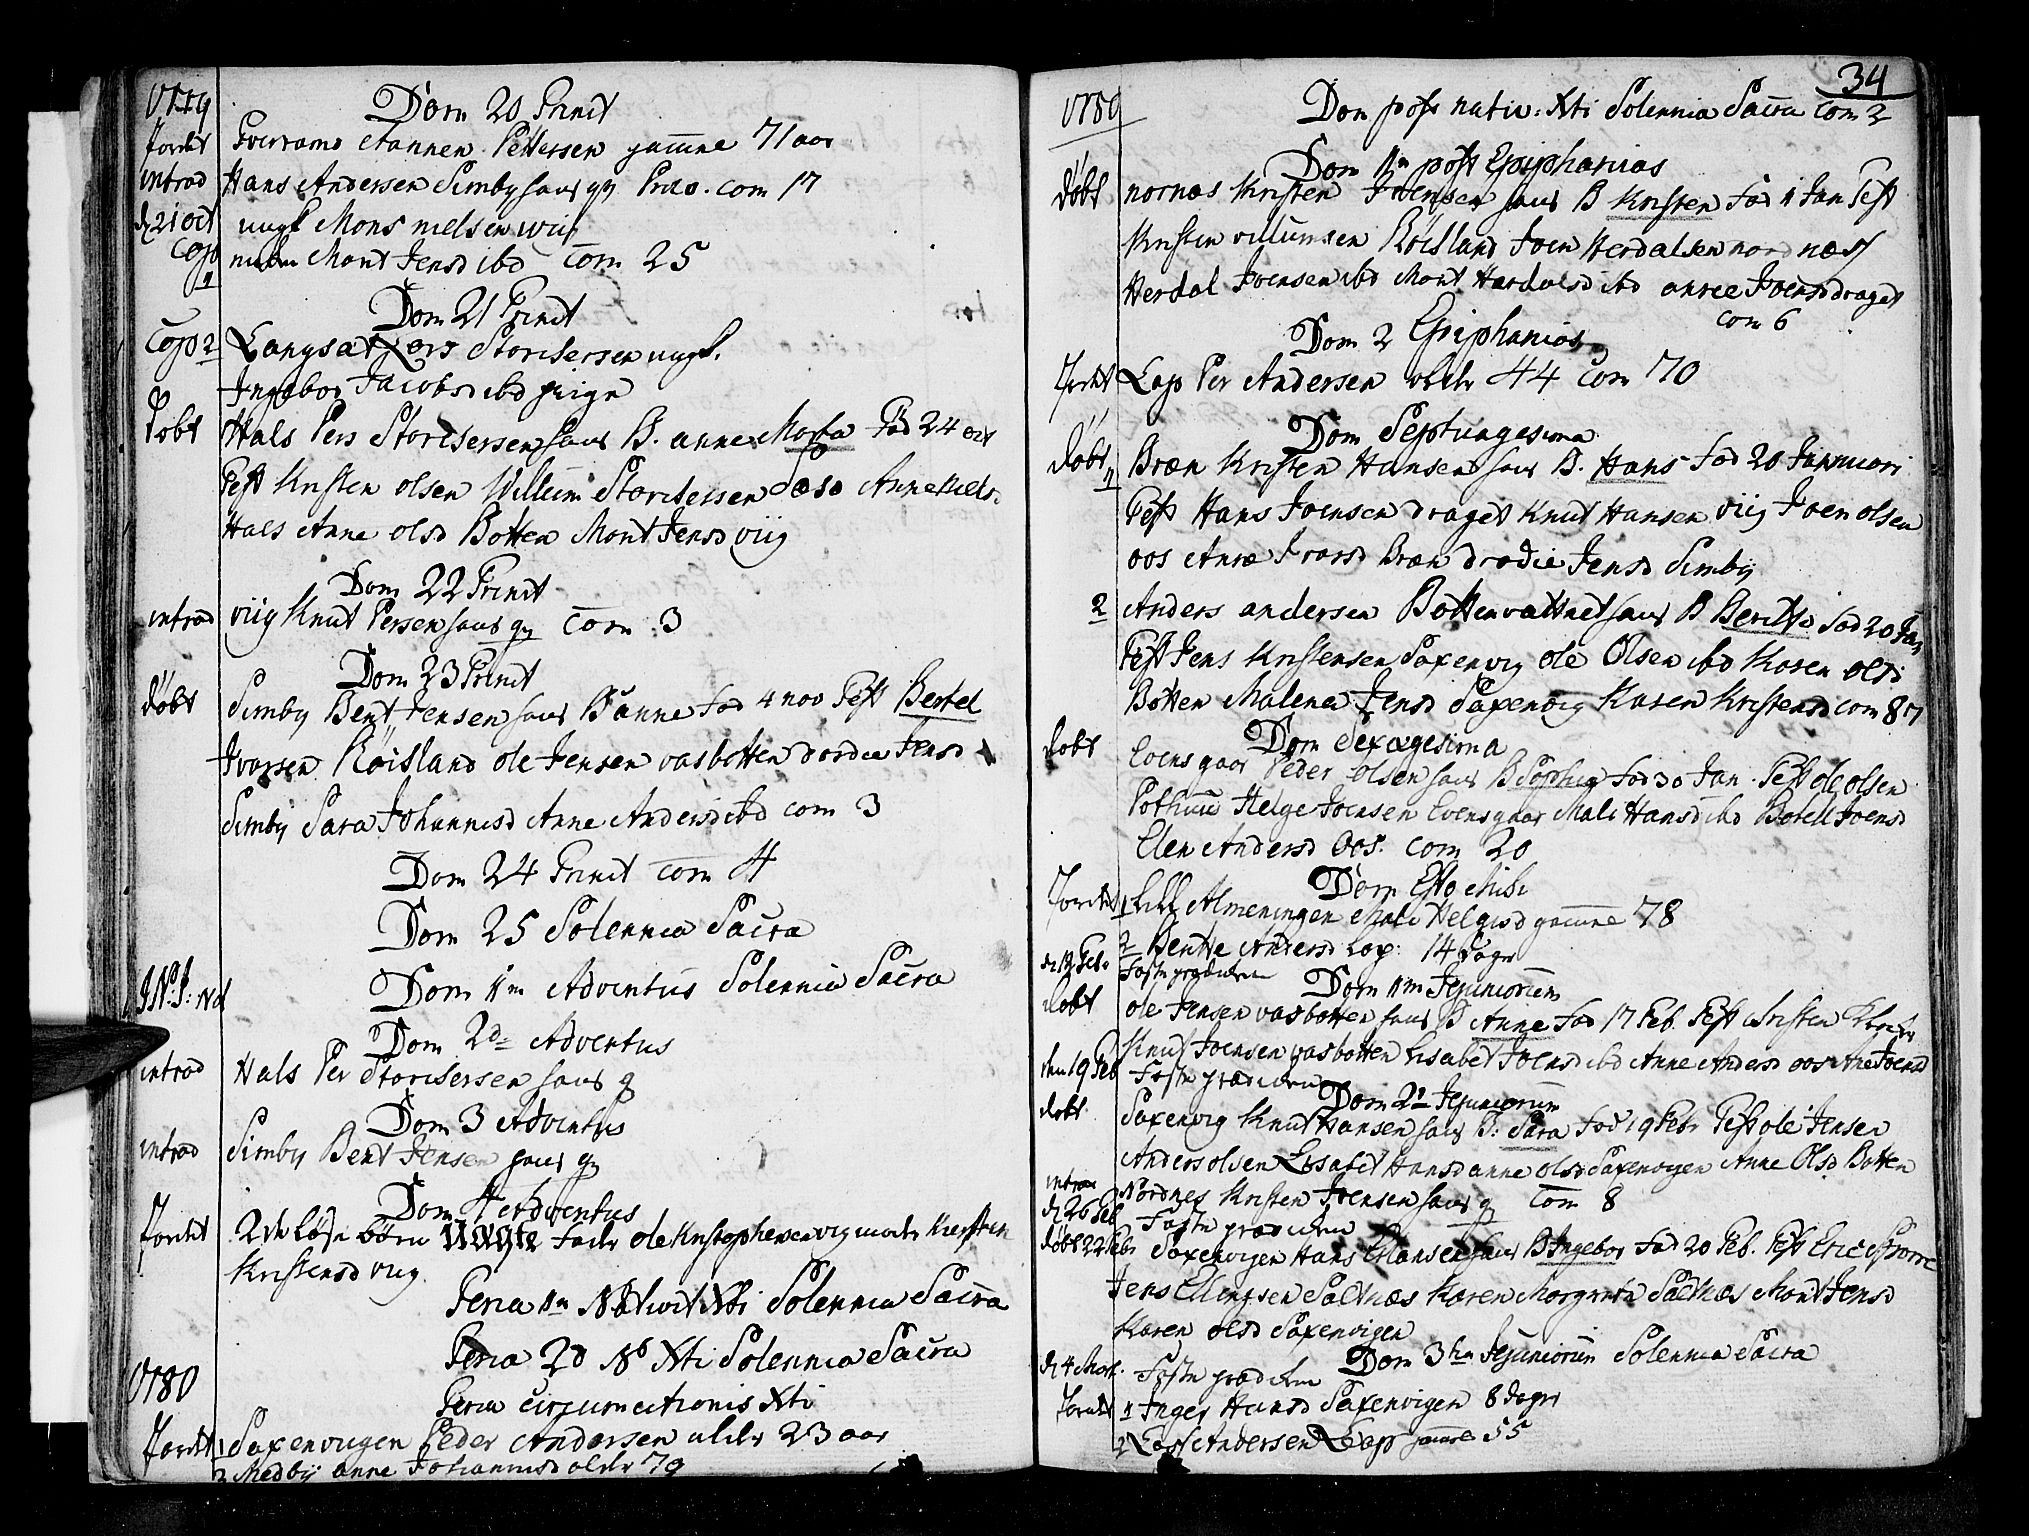 1779
Dom 20 Trinit
Jordet
Hannen Pettersen gamme 71 aar
introd
Hans Andersen Simby haus qv Præs. com 17
d 21 oct
ungk Mons nielsen viig
Cop
1
Mont Jensd ibd com 25
Dom 21 Trinit
Cop 2
Langsat Lars Storchersen ungk.
Ingebor Jacobsd ibd pige
Døbt
Hals Pers Storchersen haus B. anne Marta Fød 24 oct
Test Kristen olsen Willum Storchersen Anne Nielsd
Hals Anne olsd Botten Mont Jensd viig
Dom 22 Trinit
introd
viig Knut Persen haus qv com 3
Dom 23 Trinit
døbt
Simby Bent Jensen haus B anne Fød 4 nov Test Bertel
Ivarsen Røisland ole Jensen vasbotten dordie Jensd
Simby Sara Johannisd Anne Andersd ibd com 3
Dom 24 Trinit com 4
Dom 25 Solennia Sacra
Dom 1m Adventus Solennia Sacra
Dom 2d Adventus
introd
Hals Per Storchersen haus q
Dom 3 Adventus
introd
Simby Bent Jensen haus q
Dom 4 Adventus
Jordet
2 børn Fader ole Kristophersen viig moder Kiersten
Kristensd viig
Feria 1m Nativit Xti Solennia Sacra
Feria 2d Xti Solennia Sacra
1780
Feria circumcitionis Xti
Jordet
1 Saxenvigen Peder Andersen alder 23 aar
2 Medbÿ anne Johannisd alder 79
34
1780
Dom post nativ: Xti Solennia Sacra Com 2
Dom 1m post Epiphanias
døbt
nornæs Kristen Joensen haus B Kristen Fød 1 Jan Test
Kristen villumsen Røisland Joen Herdalsen nordnæs
Herdal Joensen ibd Mont Herdalsd ibd anne Joensd draget
com 6
Dom 2 Epiphanias
Jordet
Lap Per Andersen alder 44 Com 70
Dom Septuagesima
døbt
1
Bræn Kristen Hansens haus B. Hans Fød 20 Januari
Test Hans Joensen draget Knut Hansen viig Joen olsen
oos Anne Ivarsd Bræn dradie Jensd Simbÿ
2
Anders andersen Bottenvattnet haus B Berithe Fød 20 Jan
Test Jens Kristensen Saxenvig ole Olsen ibd Karen olsd
Botten Malena Jensd Saxenvig Karen Kristensd com 87
Dom Sexagesima
Døbt
Evensgaar Peder olsen haus B Sophia Fød 30 Jan. Test ole olsen
Pothuus Helge Joensen Evensgaar Mali Hansd ibd Botell Joensd
Elen Andersd Oos. com 20
Dom Esto Mihi
Jordet
1 Lill Almeningen Mali Helgesd gamme 78
2 Bentte Andersd Lap: 14 dage
Fasteprædiken
Dom 1m Jejuniorum
døbt
ole Jensen vasbotten haus B Anne Fød 17 Feb. Test Kristen
Knut Joensen vasbotten Lisabet Joensd ibd Anne Andersd oos Ane Joensd
den 19 Feb
Faste prædiken
Dom 2 Jejuniorum
døbt
Saxenvig Knut Hansen haus B: Sara Fød 19 Feb Test ole Jensen
Anders olsen Lisabet Hansd anne olsd Saxenvigen Anne Olsd Botten
introd
Nordnes Kristen Joensen haus q Com 8
d 26 Feb
Faste prædiken
døbt 22 Feb
Saxenvigen Hans Hansen haus B Ingebor Fød 20 Feb. Test Eric Sporre
Jens Ellingsen Saltnæs Karen Margreta Saltnæs Mont Jensd
Karen olsd Saxenvigen
Dom 3 Jejuniorum Solennia Sacra
d 4 Mart.
Faste prædiken
Jordet
1 Inger Hansd Saxenvigen 8 dager
2 Andersen Lap gamel 55